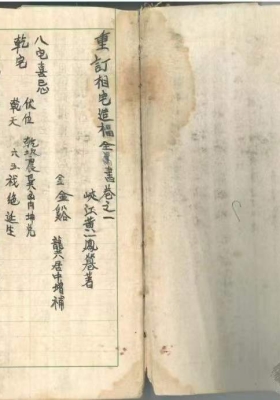 重訂相宅造福全書卷之一
峽江黃一鳳鸞著
金谿 龍天居中增補
八宅喜忌
乾宅 伏位 乾坎艮震巽离坤兌
乾天 六五禍絕延生